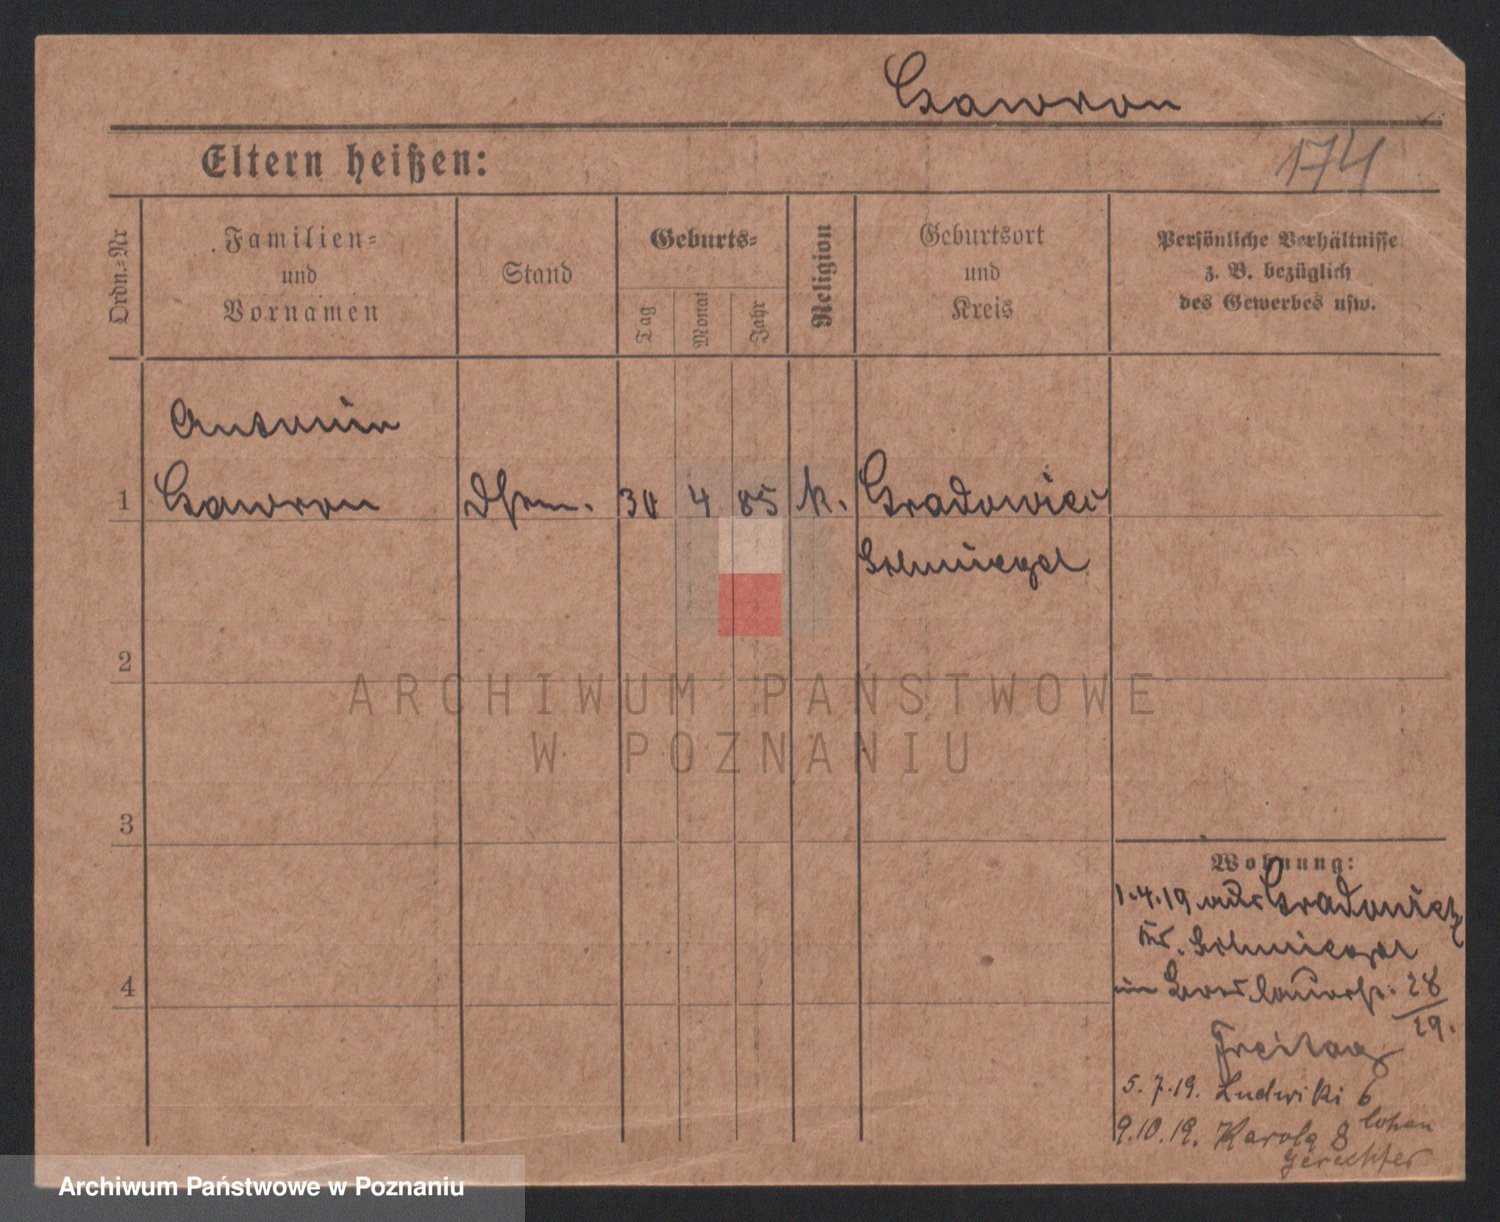 Gawron
Eltern heißen:
174
Ordn.-Nr
Familien-
und
Vornamen
Stand
Geburts-
Tag
Monat
Jahr
Religion
Geburtsort
und
Kreis
Persönliche Verhältnisse
z. B. bezüglich
des Gewerbes usw.
Antonin
1 Gawron 30 4 85 k. Gradowice
Schmiegel
2
ARCHIWUM PAŃSTWOWE
W POZNANIU
3
Wohnung:
1.4.19 aus Gradowice
Kr. Schmiegel
28
29.
Freitag
5.7.19. Ludwiki 6
9.10.19. Karola 8
4
Archiwum Państwowe w Poznaniu